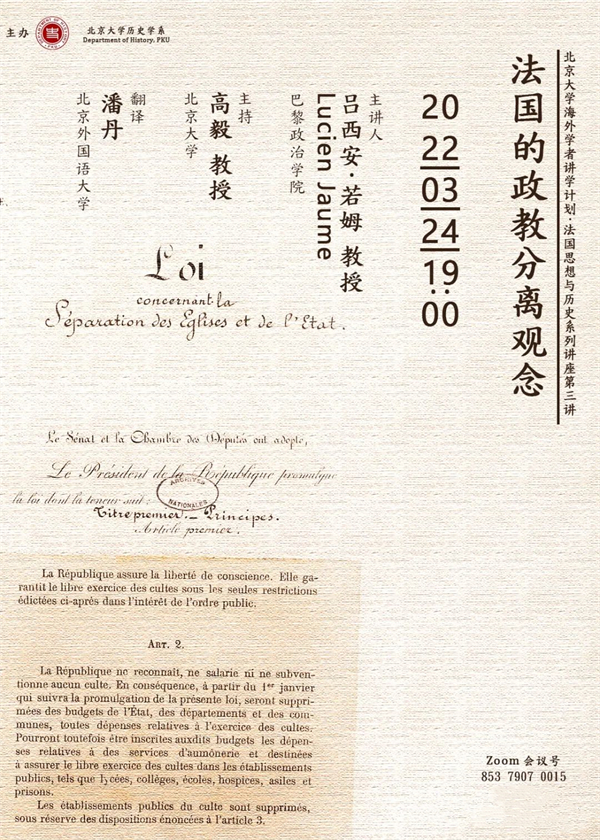 主办
北京大学历史学系
Department of History, PKU
北京大学海外学者讲学计划·法国思想与历史系列讲座第三讲
法国的政教分离观念
20
22
03
24
19:00
主讲人
吕西安·若姆 教授
Lucien Jaume
巴黎政治学院
主持
高毅 教授
北京大学
翻译
潘丹
北京外国语大学
Loi
concernant la
Séparation des Eglises et de l'Etat.
Le Sénat et la Chambre des Députés ont adopté,
Le Président de la République promulgue
la loi dont la teneur suit:
ARCHIVES
NATIONALES
Titre premier._ Principes.
Article premier.
La République assure la liberté de conscience. Elle ga-
rantit le libre exercice des cultes sous les seules restrictions
édictées ci-après dans l'intérêt de l'ordre public.
ART. 2.
La République ne reconnait, ne salarie ni ne subven-
tionne aucun culte. En conséquence, à partir du 1er janvier
qui suivra la promulgation de la présente loi, seront suppri-
mées des budgets de l'État, des départements et des com-
munes, toutes dépenses relatives à l'exercice des cultes.
Pourront toutefois être inscrites auxdits budgets les dépen-
ses relatives à des services d'aumônerie et destinées
à assurer le libre exercice des cultes dans les établissements
publics, tels que lycées, collèges, écoles, hospices, asiles et
prisons.
Les établissements publics du culte sont supprimés,
sous réserve des dispositions énoncées à l'article 3.
Zoom 会议号
853 7907 0015